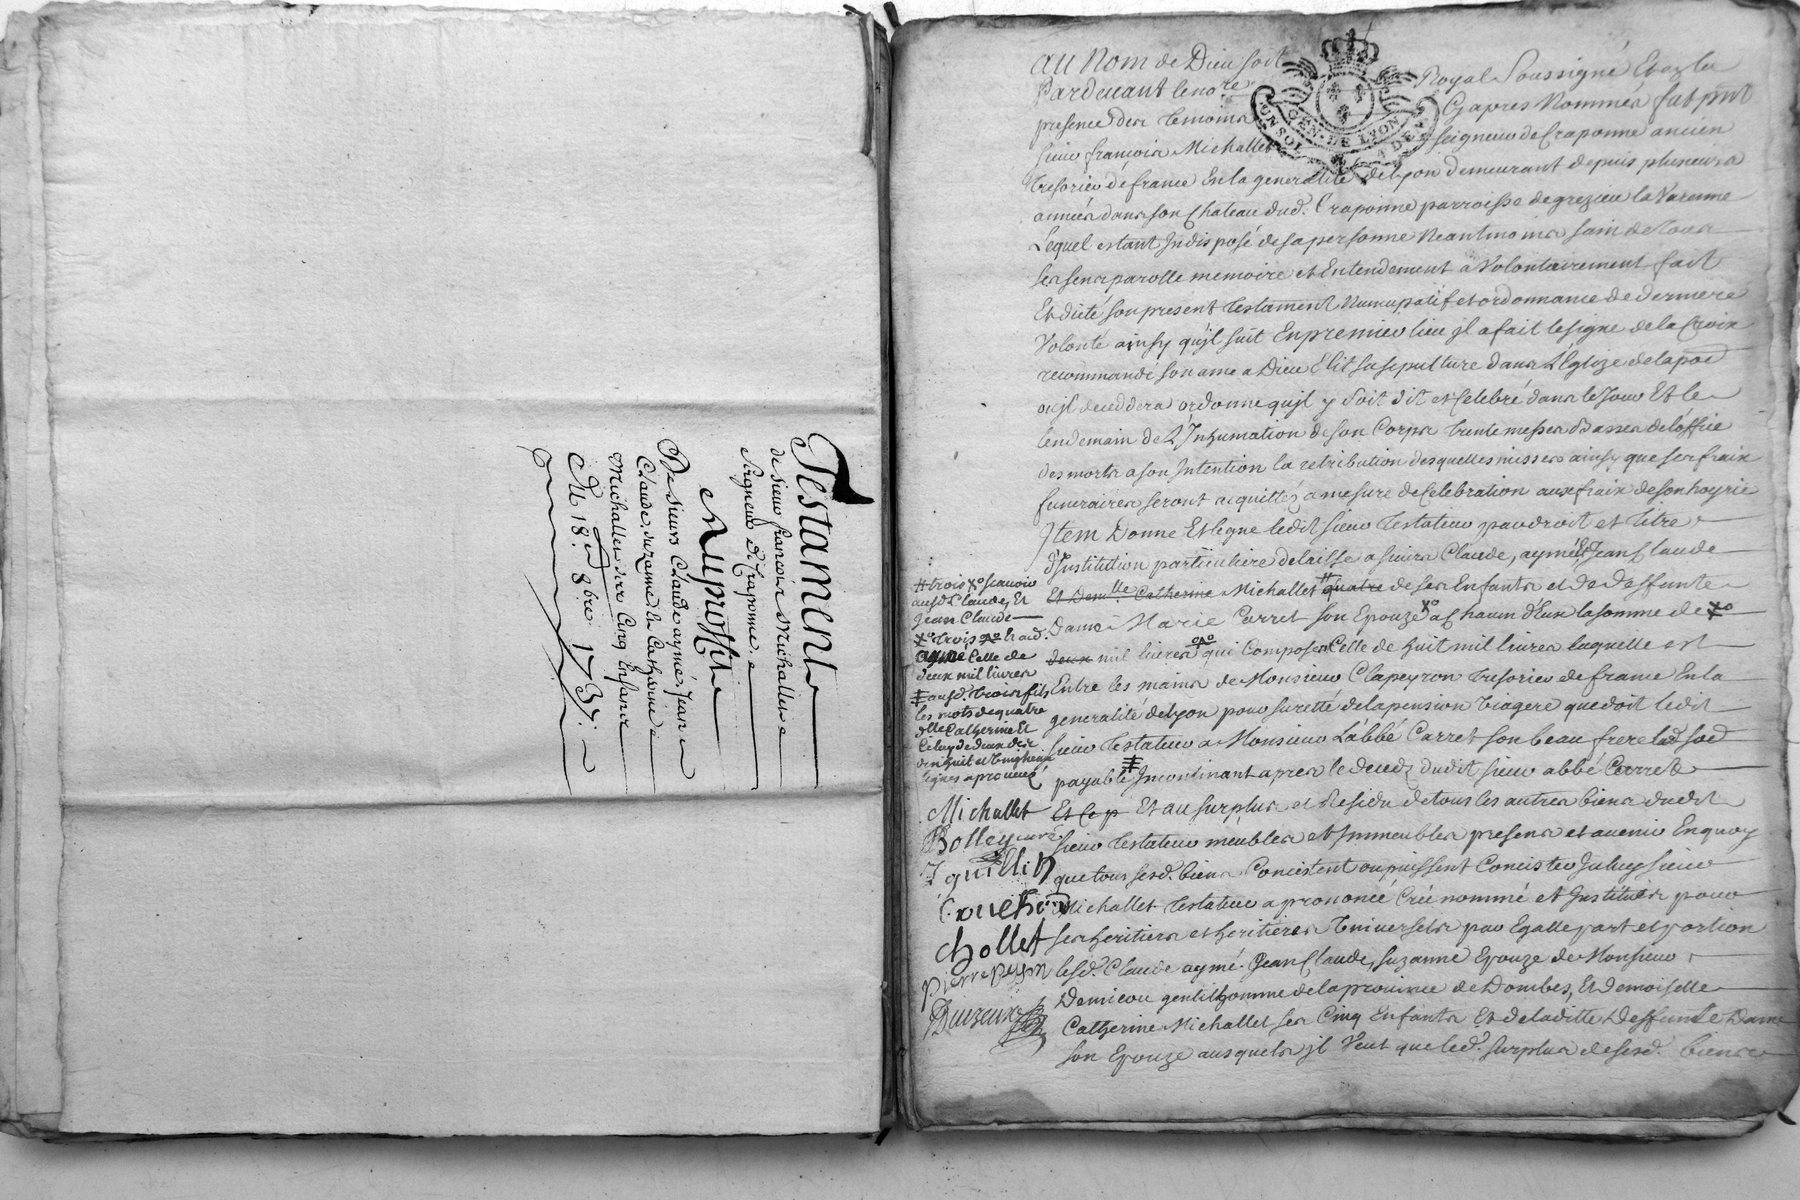 Testament
de sieur françois Michallet
Seigneur de Craponne
Au proffit
De sieurs Claude, aymé, Jean
Claude, suzanne, & Catherine
Michallet ses Cinq Enfans
Du 18e. 8bre. 173
Au Nom de Dieu soit
Pardevant le no.re Royal Soussigné Et ez la
presence des temoins Cy apres Nommés fut pnt
sieur françois Michallet seigneur de Craponne ancien
Tresorier de france En la generalité de Lyon demeurant depuis plusieurs
années dans son Chateau dud. Craponne parroisse de grezieu la Varenne
Lequel estant Indisposé de sa personne Neantmoins sain de tous
ses sens parolle memoire et Entendement a Volontairement fait
Et dicté son present testament Nuncupatif et ordonnance de derniere
Volonté ainsy qu'jl suit En premier lieu jl a fait le signe de la Croix
recommandé son ame a Dieu Elit sa sepulture dans L'Eglize de la poe
ou jl deceddera ordonne qu'jl y soit dit et Celebré dans le Jour Et le
lendemain de L'Inhumation de son Corps trente messes Basses de l'office
des morts a son Intention la retribution desquelles messes ainsy que ses fraix
funeraires seront acquittés a mesure de Celebration aux fraix de son hoyrie
Jtem Donne Et legue ledit sieur testateur par droit et titre
d'Institution particuliere delaisse a sieurs Claude, aymé, Et Jean Claude
Et Dem.lle Catherine Michallet # quatre de ses Enfants et de deffunte
Dame Marie Carret son Epouze a Chacun d'Eux la somme de
deux mil livres qui Composent Celle de huit mil livres laquelle est
Entre les mains de Monsieur Clapeyron tresorier de france En la
generalité de Lyon pour sureté de la pension Viagere que doit ledit
sieur testateur a Monsieur L'abbé Carret son beau frere lad. soe
payable Incontinant apres le decedz dudit sieur abbé Carret
Et Ce p Et au surplus et Residu de tous les autres biens dudit
sieur testateur meubles et Immeubles presens et avenir En quoy
que tous sesd. biens Concistent ou puissent Concister Jceluy sieur
Michallet testateur a prononcé Créé nommé et Institués pour
ses heritiers et heritieres Universels par Egalle part et portion
lesd. Claude aymé. Jean Claude, suzanne Epouze de Monsieur
Demicou gentilhomme de la province de Dombes, Et demoiselle
Catherine Michallet ses Cinq Enfants Et de laditte Deffunte Dame
son Epouze ausquels jl Veut que led. surplus de sesd. biens
# trois xo scavoir
ausd. Claude, Et
Jean Claude
xo trois
aymé Celle de
deux mil livres
ausd. trois fils
les mots de quatre
dlle Catherine Et
Celuy de deux des
dixhuit et
lignes aprouvez
Michallet
Bolley curé
Jguillin
Couchoud
Chollet
pierre peyson